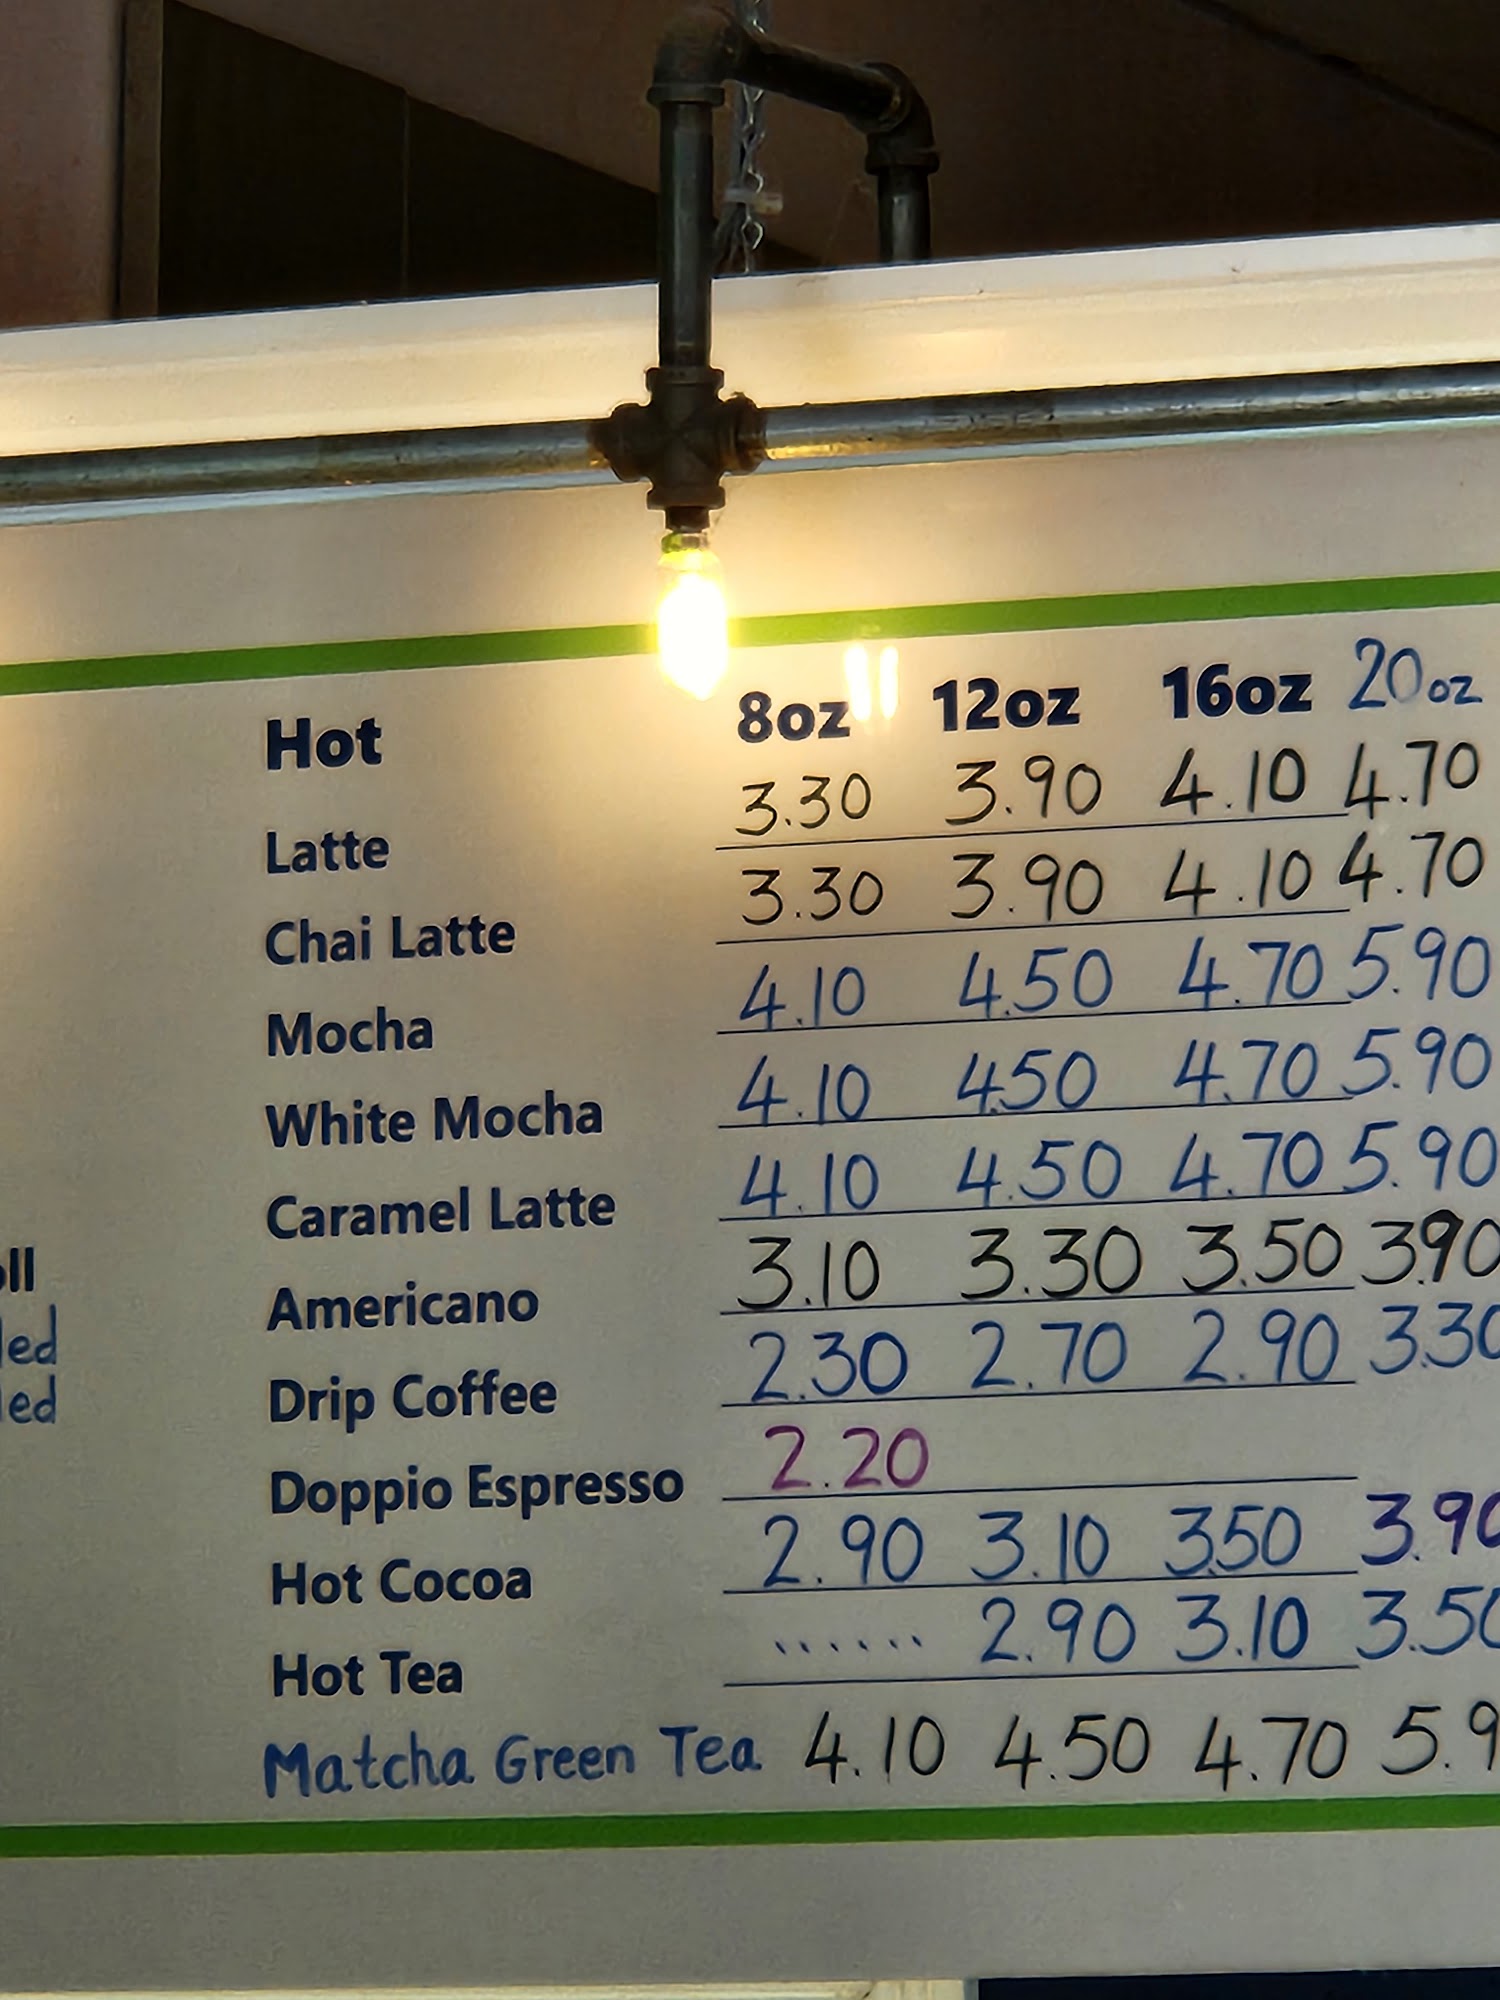 Hot 8oz 12oz 16oz 20oz
Latte 3.30 3.90 4.10 4.70
Chai Latte 3.30 3.90 4.10 4.70
Mocha 4.10 4.50 4.70 5.90
White Mocha 4.10 4.50 4.70 5.90
Caramel Latte 4.10 4.50 4.70 5.90
Americano 3.10 3.30 3.50 3.90
Drip Coffee 2.30 2.70 2.90 3.30
Doppio Espresso 2.20
Hot Cocoa 2.90 3.10 3.50 3.90
Hot Tea ....... 2.90 3.10 3.50
Matcha Green Tea 4.10 4.50 4.70 5.9